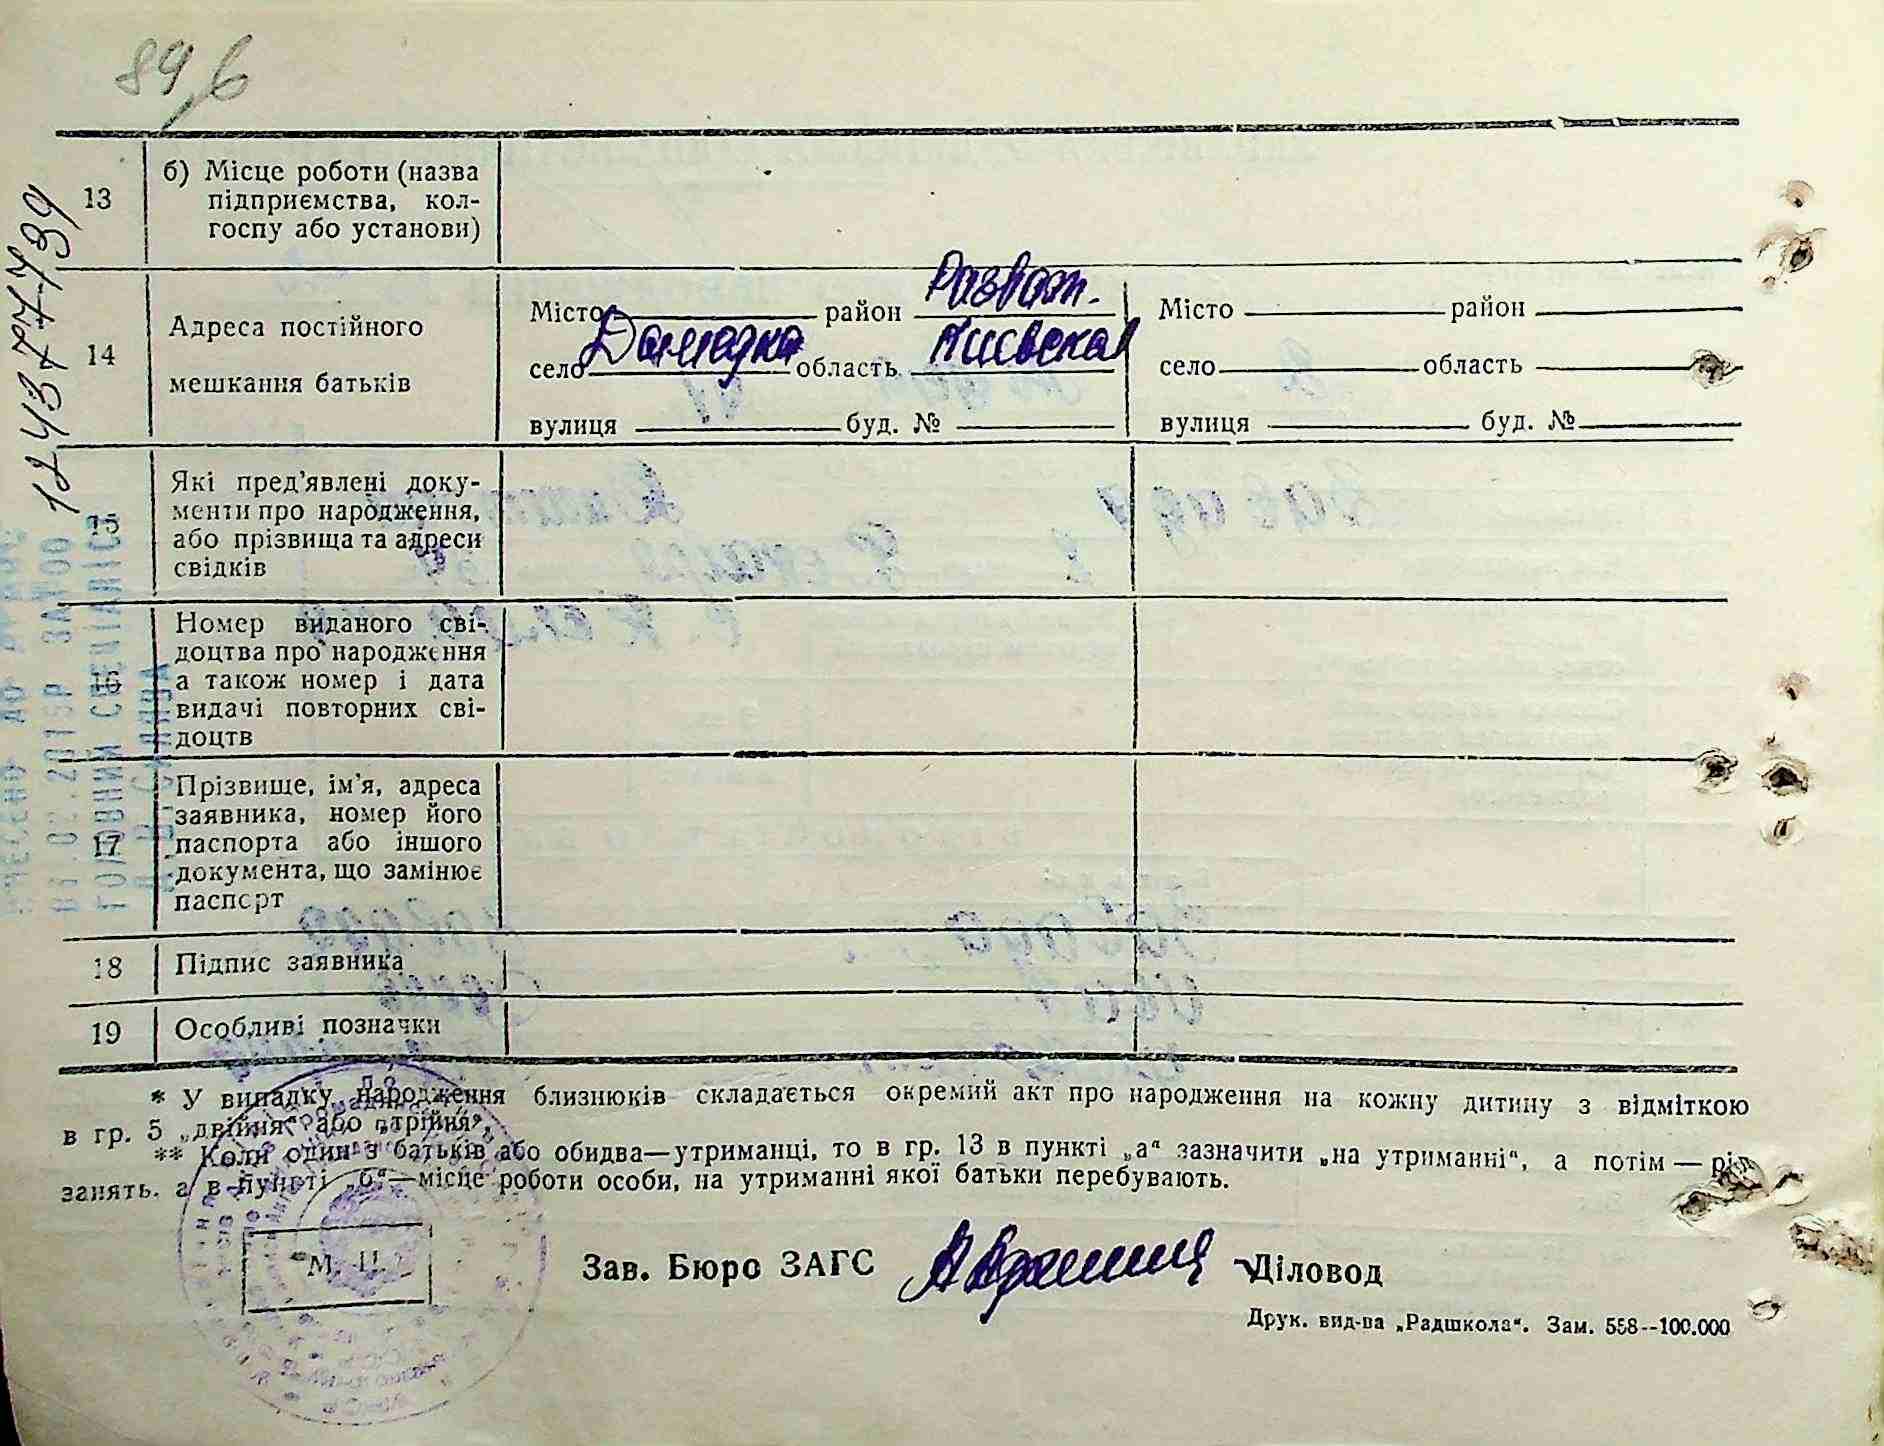 89,б
1243777739
13
б) Місце роботи (назва
підприємства, кол-
госпу або установи)
14
Адреса постійного
мешкання батьків
Місто район Розваж.
село область Киевская
вулиця буд. №
Місто район
село область
вулиця буд. №
15
Які пред'явлені доку-
менти про народження,
або прізвища та адреси
свідків
16
Номер виданого сві-
доцтва про народження
а також номер і дата
видачі повторних сві-
доцтв
17
Прізвище, ім'я, адреса
заявника, номер його
паспорта або іншого
документа, що замінює
паспорт
18
Підпис заявника
19
Особливі позначки
ГОЛОВНИЙ СПЕЦІАЛІСТ
* У випадку народження близнюків складається окремий акт про народження на кожну дитину з відміткою
в гр. 5 „двійня“ або „трійня“.
** Коли один з батьків або обидва—утриманці, то в гр. 13 в пункті „а“ зазначити „на утриманні“, а потім — рід
занять, а в пункті „б“—місце роботи особи, на утриманні якої батьки перебувають.
М. П.
Зав. Бюро ЗАГС
Діловод
Друк. вид-ва „Радшкола“. Зам. 558--100.000